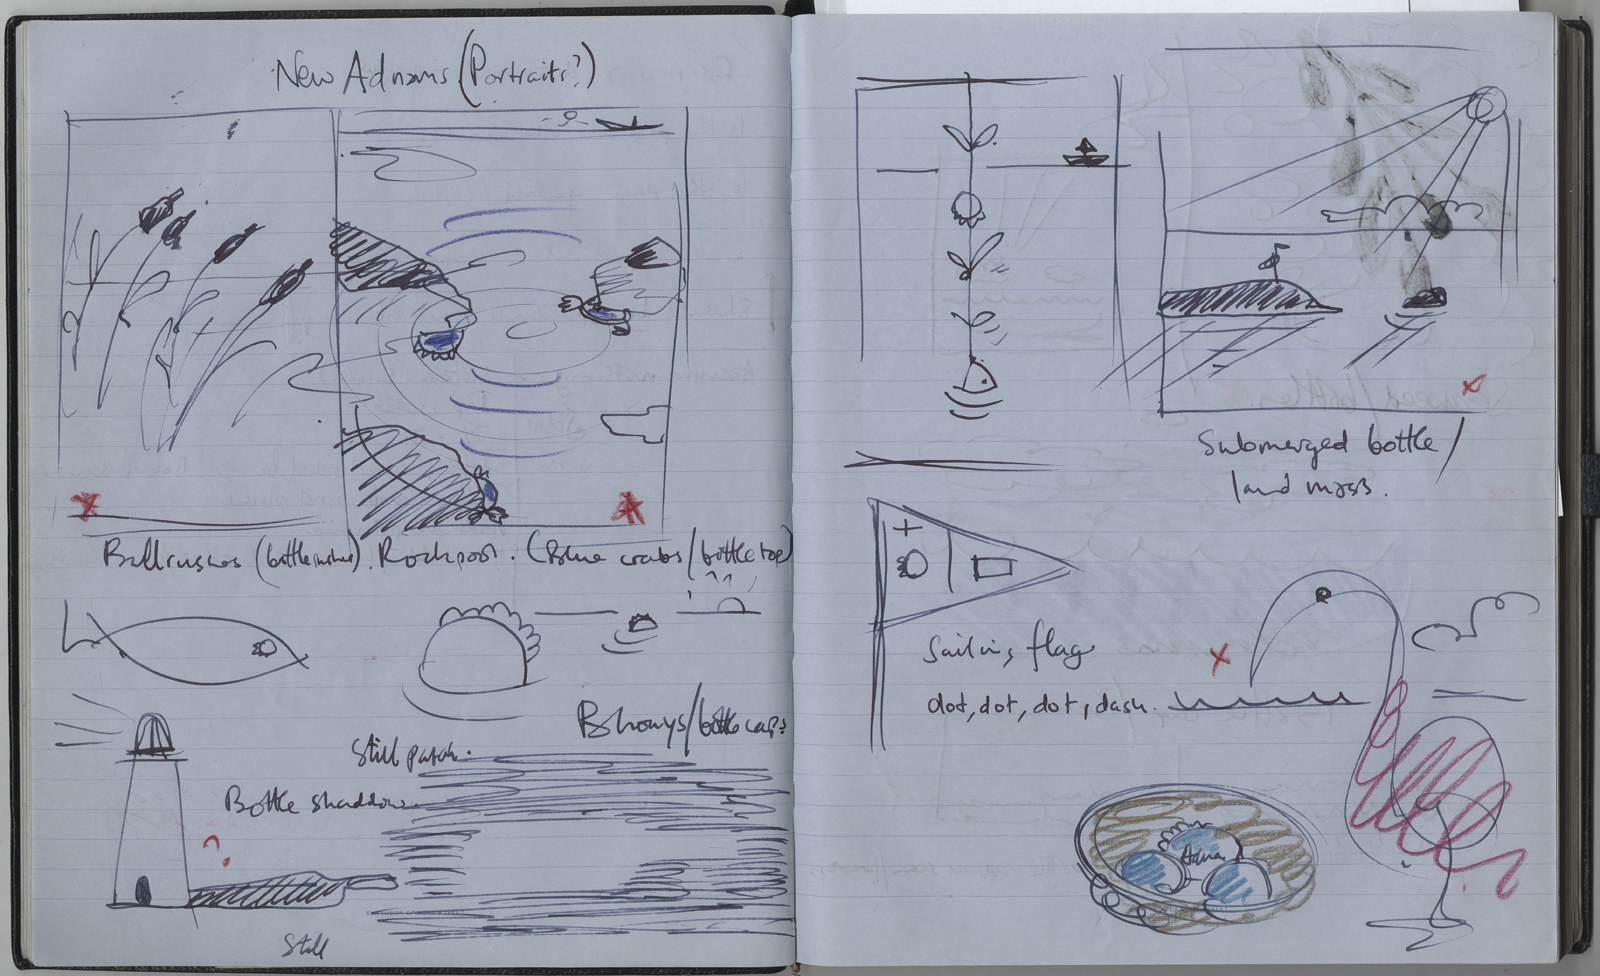 New Adnams (Portraits?)
Bullrushes (bottlenishes). Rockpool. (Blue crabs/bottle top)
Bhouys/bottle caps
Still patch.
Bottle shaddow.
?
Still
Submerged bottle/
land mass.
Sailing flag
dot, dot, dot, dash.
Adna